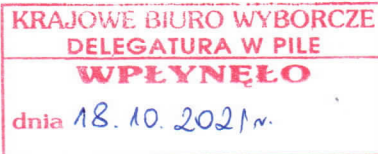 KRAJOWE BIURO WYBORCZE
DELEGATURA W PILE
WPŁYNĘŁO
dnia 18.10.2021r.